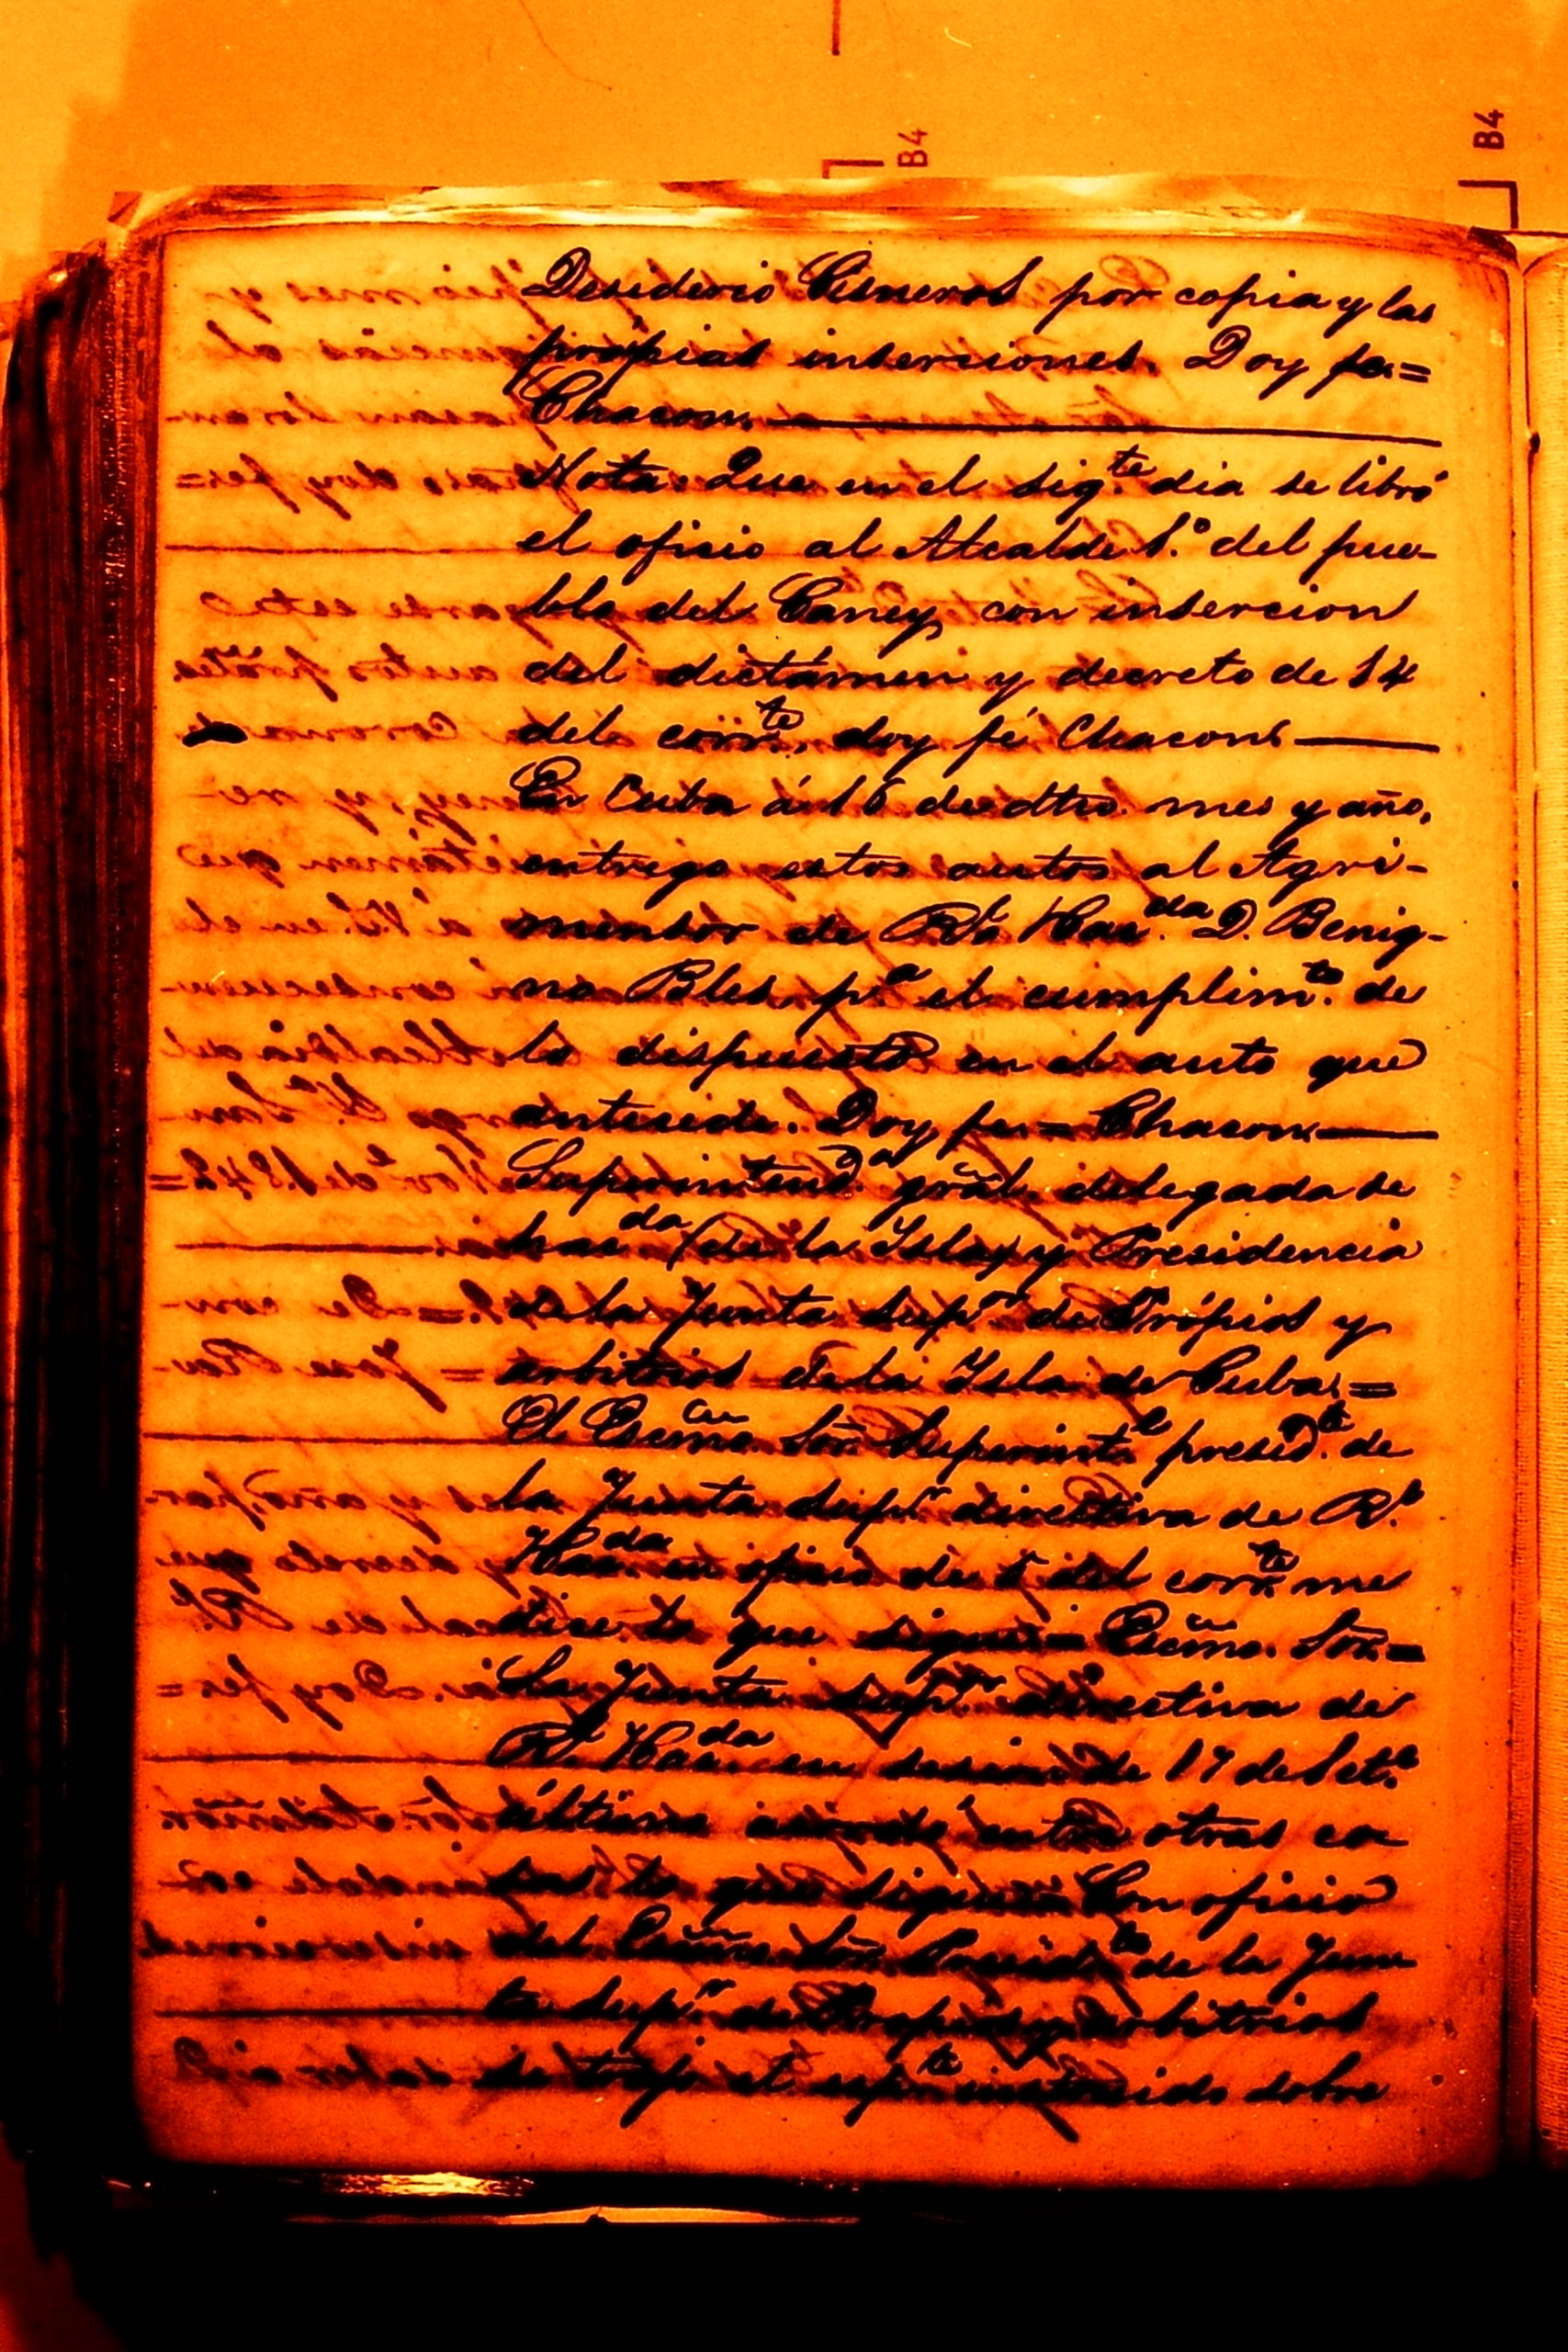 B4
B4
Desiderio Cisneros por copia y las
própias inserciones. Doy fe=
Chacon.
Nota. Que en el sig.te dia se libró
el oficio al Alcalde 1.º del pue-
blo del Caney con insercion
del dictámen y decreto de 14
del corr.te doy fé Chacon
En Cuba á 16 de dtro. mes y año,
entrego estos autos al Agri-
mensor de Rl. Hac.da D. Benig-
no Bles, p.a el cumplim.to de
lo dispuesto en el auto que
antecede. Doy fe = Chacon
Superintend.a gral. delegada de
hac.da (de la Isla) y Presidencia
de la Junta sup.r de Própios y
arbitrios de la Isla de Cuba =
El Escmo. Sor. Superint.e presid.te de
la Junta sup.r directiva de R.l
Hac.da en oficio de 5 del corr.te me
dice lo que sigue = Escmo. Sor. =
La Junta sup.r directiva de
R.l Hac.da en sesion de 17 de Set.e
último acordó entre otras co
sas lo que sigue = Con oficio
del Escmo. Sor. Presid.te de la Jun
ta sup.r de Propios y Arbitrios
se trajo el esp.te instruido sobre